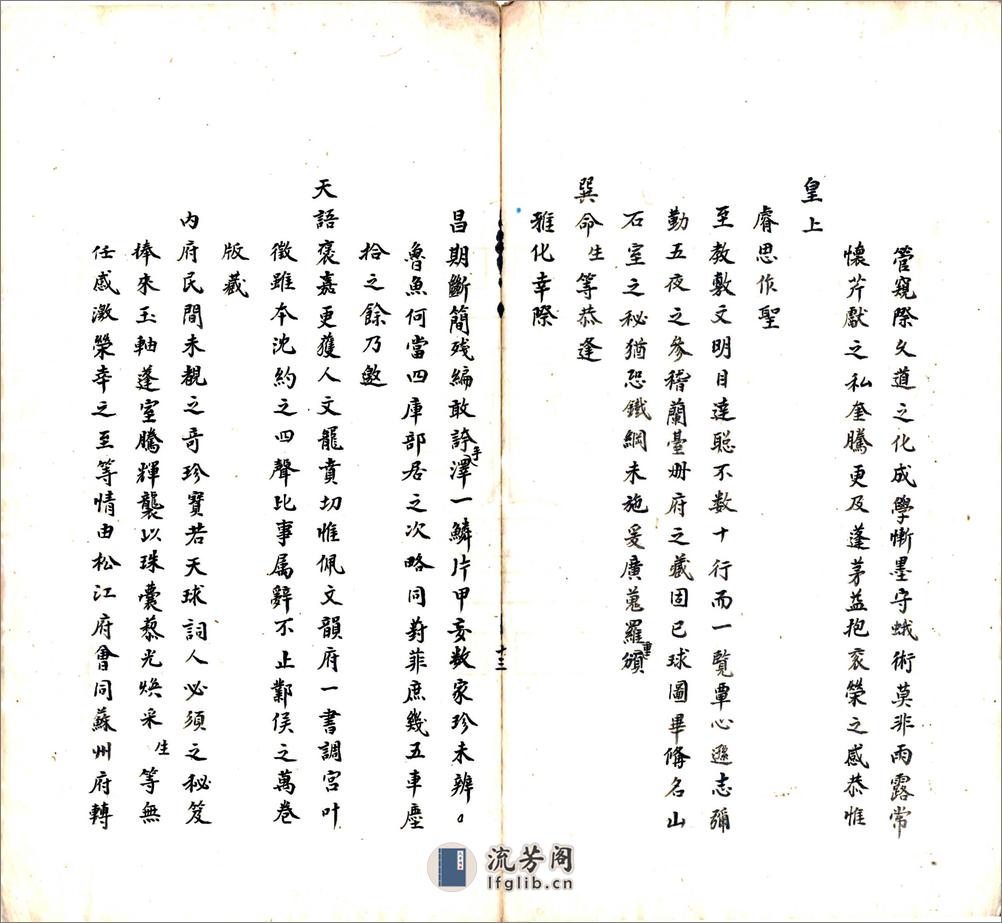 管窺際久道之化成學慚墨守蛾術莫非雨露常
懷芹獻之私奎騰更及蓬茅益抱袞榮之感恭惟
皇上
睿思作聖
至教敷文明目達聰不數十行而一覽覃心遜志彌
勤五夜之參稽蘭臺冊府之藏固已球圖畢脩名山
石室之秘猶恐鐵網未施爰廣蒐羅頒重
巽命生等恭逢
雅化幸際
十三
昌期斷簡殘編敢誇手澤一鱗片甲妄數家珍未辨。
魯魚何當四庫部居之次略同葑菲庶幾五車塵
拾之餘乃邀
天語褒嘉更獲人文寵賁切惟佩文韻府一書調宮叶
徵雖本沈約之四聲比事属辭不止鄴侯之萬卷
版藏
內府民間未覩之奇珍寶若天球詞人必須之秘笈
捧來玉軸蓬室騰輝襲以珠囊藜光煥采生等無
任感激榮幸之至等情由松江府會同蘇州府轉
流芳阁
lfglib.cn